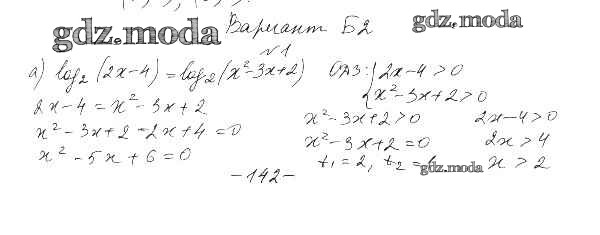 gdz.moda
Вариант Б2
gdz.moda
№1
а) log₂(2x-4) = log₂(x²-3x+2)
ОДЗ: { 2x-4 > 0
x²-3x+2 > 0
2x-4 = x²-3x+2
x²-3x+2-2x+4 = 0
x²-5x+6 = 0
x²-3x+2 > 0
x²-3x+2 = 0
t₁ = 2, t₂ =
2x-4 > 0
2x > 4
x > 2
gdz.moda
-142-